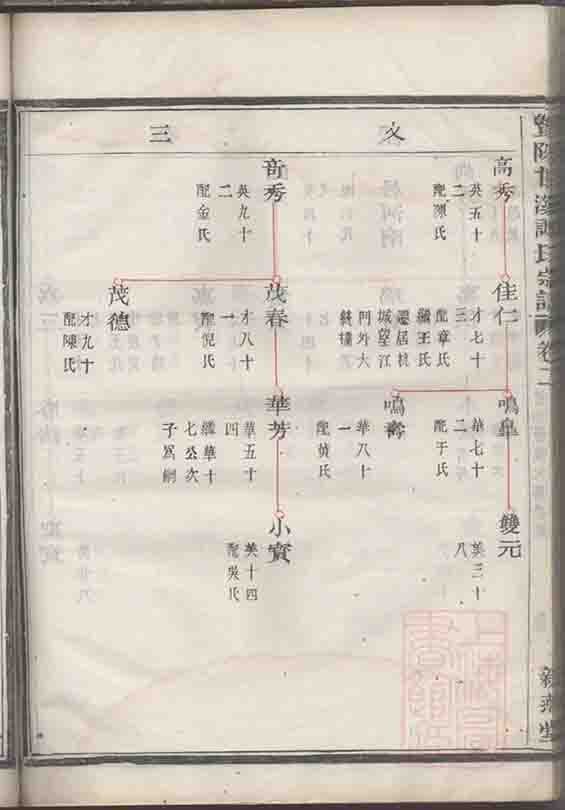 暨陽甘溪
氏宗譜
卷二
文
三
高秀
英五十
二
配陳氏
佳仁
才七十
三
配章氏
繼王氏
遷居杭
城望江
門外大
鳴皐
華七十
二
配于氏
雙元
英三十
八
鳴壽
華八十
一
音秀
英九十
二
配金氏
茂春
才八十
一
配倪氏
華芳
華五十
四
繼華十
七公次
子爲嗣
小寶
美十四
配吳氏
茂德
才九十
配陳氏